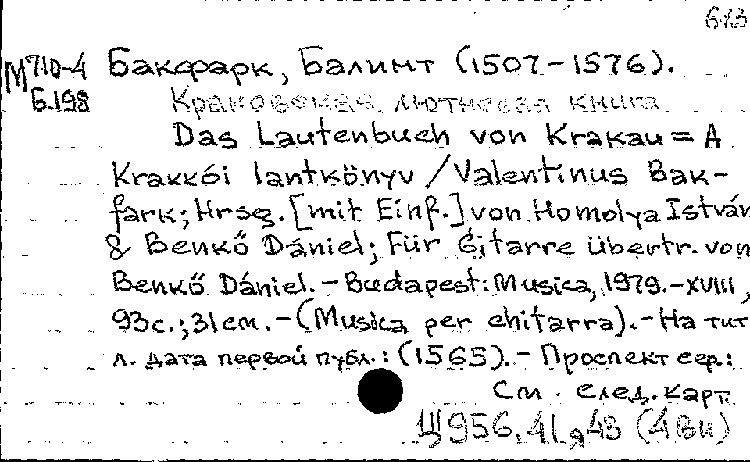 613
М710-4 Бакфарк, Балинт (1507-1576).
Б.198 Краковская лютневая книга
Das Lautenbuch von Krakau = A
Krakkói lantkönyv / Valentinus Bak-
fark; Hrsg. [mit Einf.] von Homolya István
& Benkő Dániel; Für Gitarre übertr. von
Benkő Dániel. - Budapest: Musica, 1979. - XVIII,
93с.; 31см. - (Musica per chitarra). - На тит
л. дата первой публ.: (1565). - Проспект сер.:
См. след. карт.
Щ956.41я43 (4Ви)